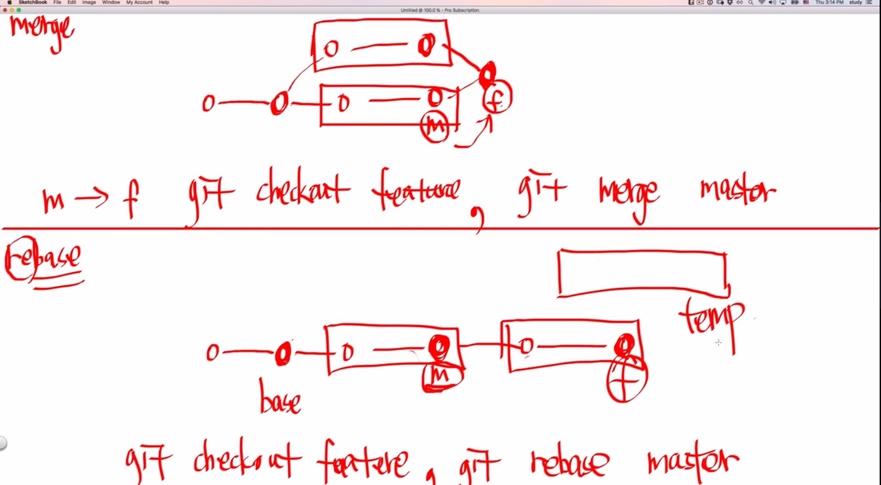 SketchBook File Edit Image Window My Account Help
Thu 3:14 PM study
Untitled @ 100.0 % - Pro Subscription
merge
f
m
m → f git checkout feature, git merge master
rebase
temp
m
f
base
git checkout feature, git rebase master